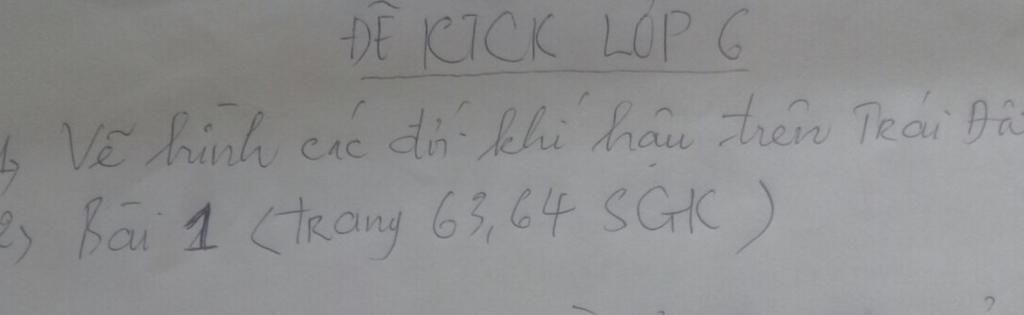 ĐỀ KTCK LỚP 6
1, Vẽ hình các đới khí hậu trên Trái Đấ
2, Bài 1 (trang 63,64 SGK)